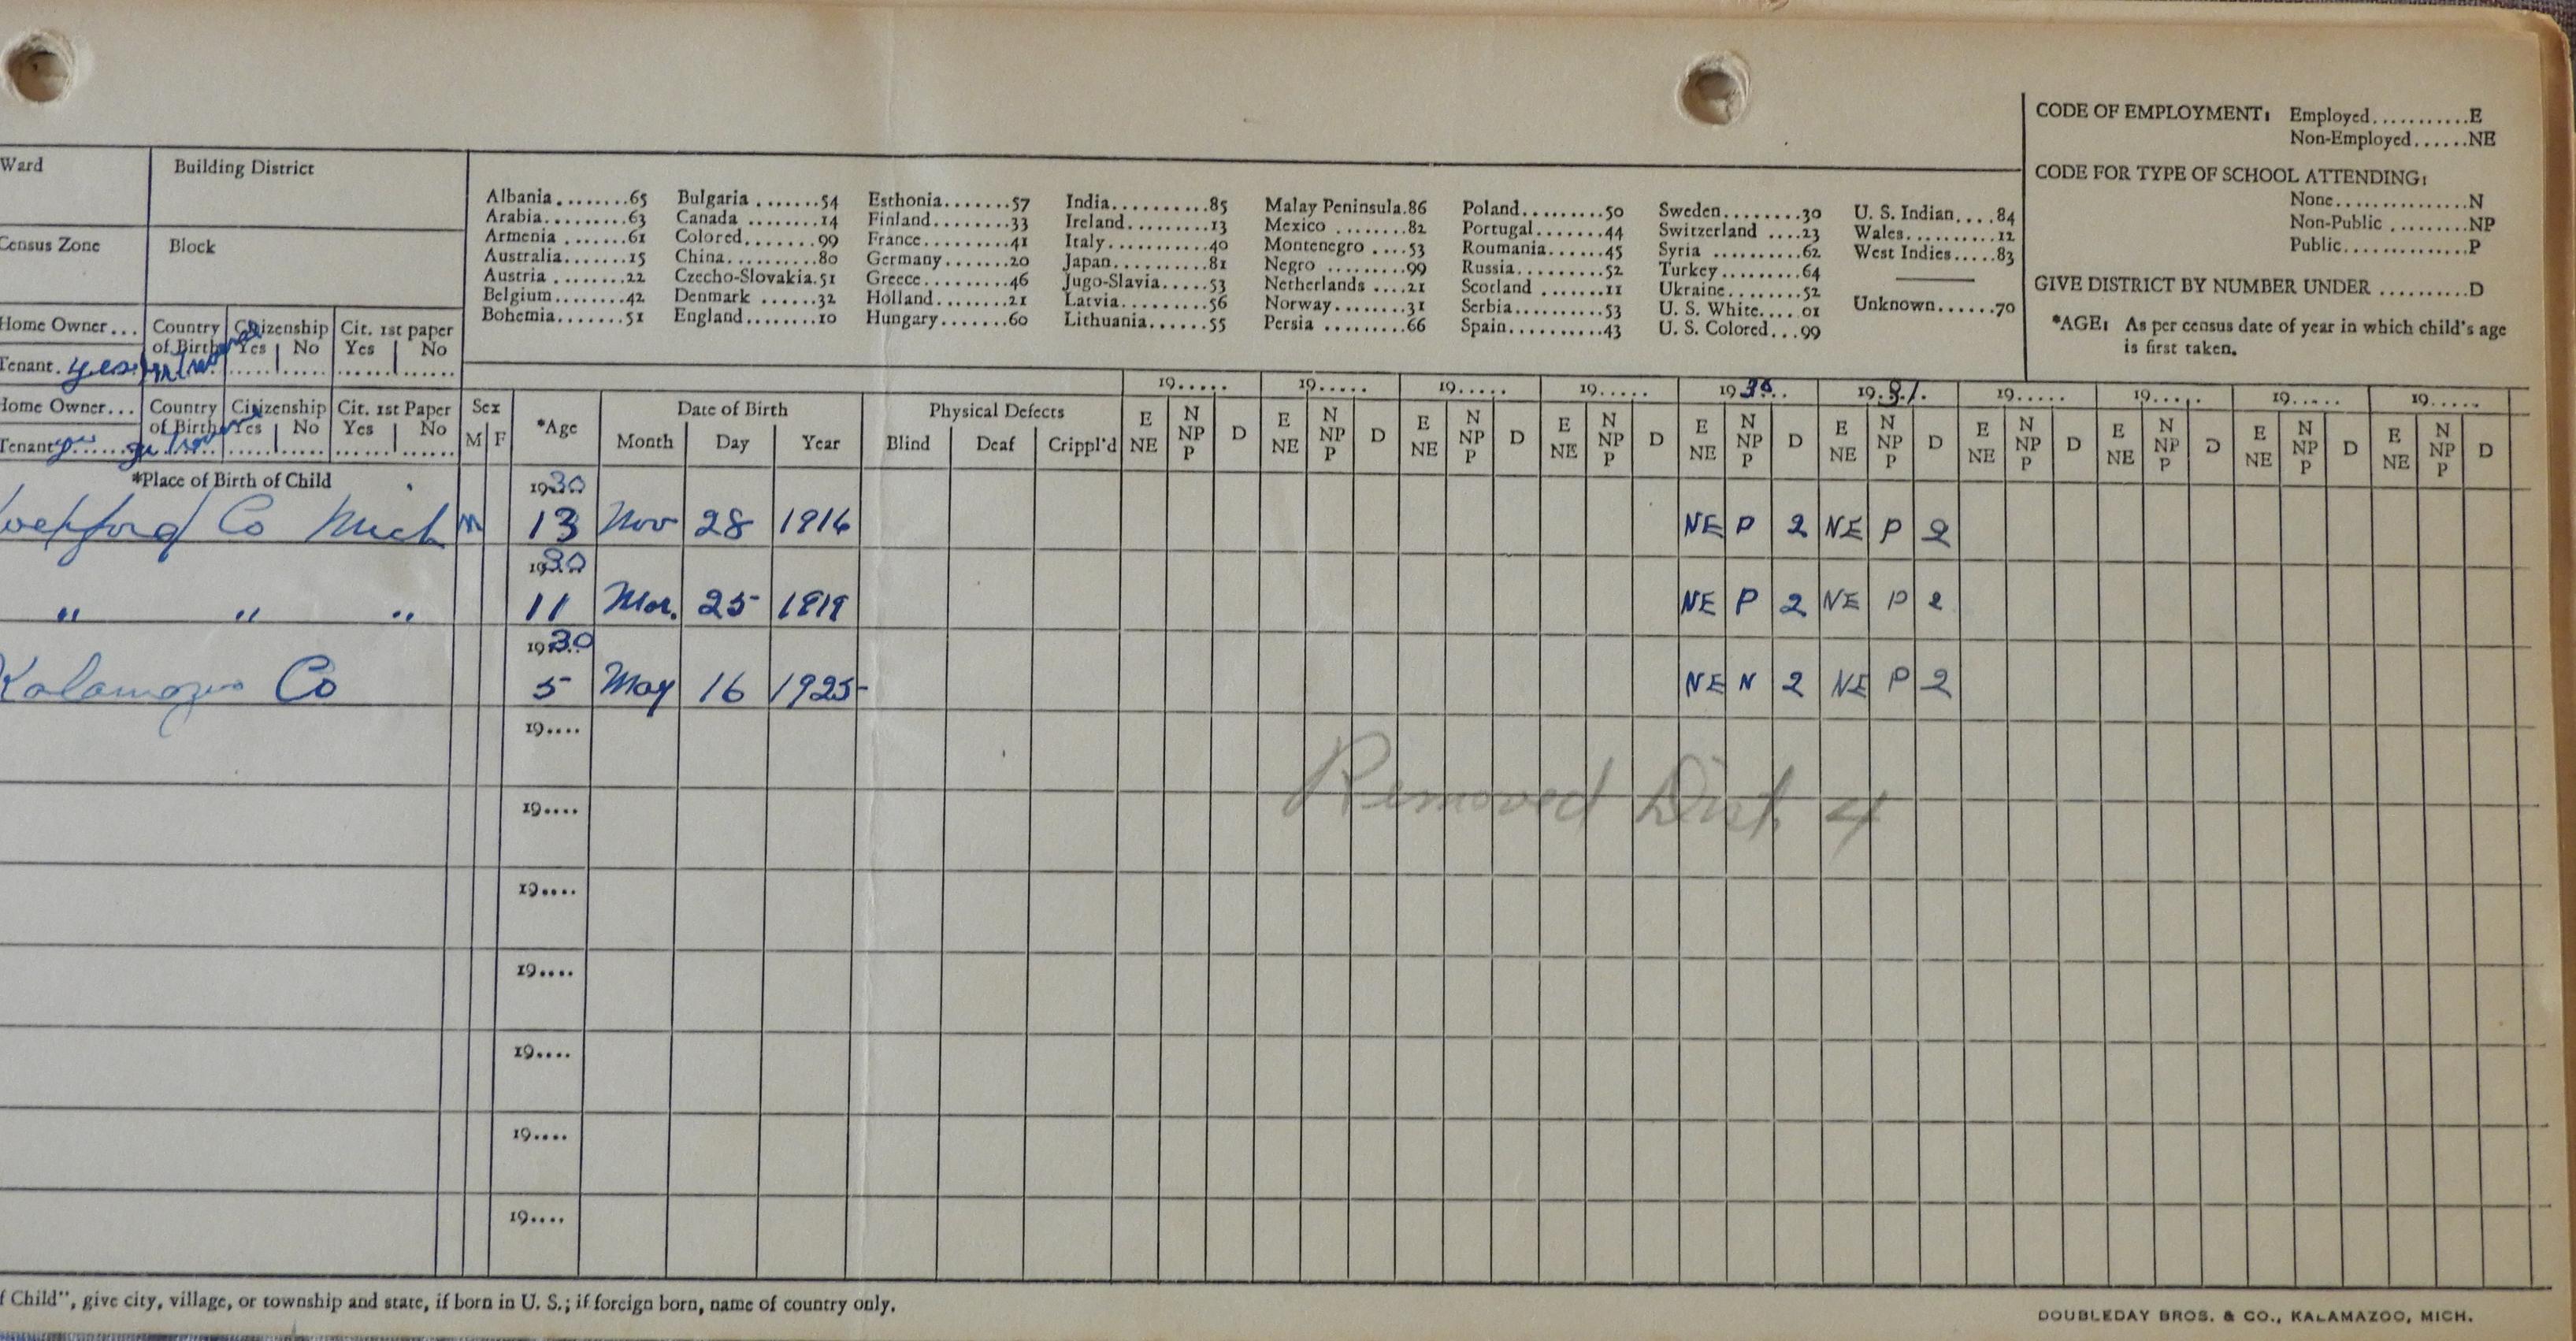 CODE OF EMPLOYMENT: Employed...........E
Non-Employed......NE
CODE FOR TYPE OF SCHOOL ATTENDING:
None...............N
Non-Public .........NP
Public...............P
GIVE DISTRICT BY NUMBER UNDER ..........D
*AGE: As per census date of year in which child's age
is first taken.
Ward Building District
Census Zone Block
Albania ........65 Bulgaria .......54 Esthonia.......57 India..........85 Malay Peninsula.86 Poland.........50 Sweden........30 U. S. Indian....84
Arabia.........63 Canada ........14 Finland........33 Ireland.........13 Mexico ........82 Portugal.......44 Switzerland ....23 Wales..........12
Armenia .......61 Colored........99 France.........41 Italy..........40 Montenegro ....53 Roumania......45 Syria .........62 West Indies.....83
Australia.......15 China..........80 Germany.......20 Japan..........81 Negro .........99 Russia.........52 Turkey........64
Austria ........22 Czecho-Slovakia.51 Greece.........46 Jugo-Slavia.....53 Netherlands ....21 Scotland .......11 Ukraine........52 Unknown......70
Belgium........42 Denmark ......32 Holland........21 Latvia.........56 Norway........31 Serbia.........53 U. S. White....01
Bohemia.......51 England........10 Hungary.......60 Lithuania......55 Persia .........66 Spain..........43 U. S. Colored...99
Home Owner... Country of Birth Citizenship Yes No Cit. 1st paper Yes No
Tenant. yes
Home Owner... Country of Birth Citizenship Yes No Cit. 1st Paper Yes No
Tenant
19..... 19..... 19..... 19..... 1930.. 19.31. 19..... 19..... 19..... 19.....
Sex *Age Date of Birth Physical Defects
M F Month Day Year Blind Deaf Crippl'd
E NE N NP P D E NE N NP P D E NE N NP P D E NE N NP P D E NE N NP P D E NE N NP P D E NE N NP P D E NE N NP P D E NE N NP P D E NE N NP P D
*Place of Birth of Child
1930
Co Mich M 13 Nov 28 1916 NE P 2 NE P 2
1930
" " " 11 Mar. 25 1919 NE P 2 NE P 2
1930
Kalamazoo Co 5 May 16 1925 NE N 2 NE P 2
19....
Removed Dist. 4
19....
19....
19....
19....
19....
19....
f Child", give city, village, or township and state, if born in U. S.; if foreign born, name of country only.
DOUBLEDAY BROS. & CO., KALAMAZOO, MICH.